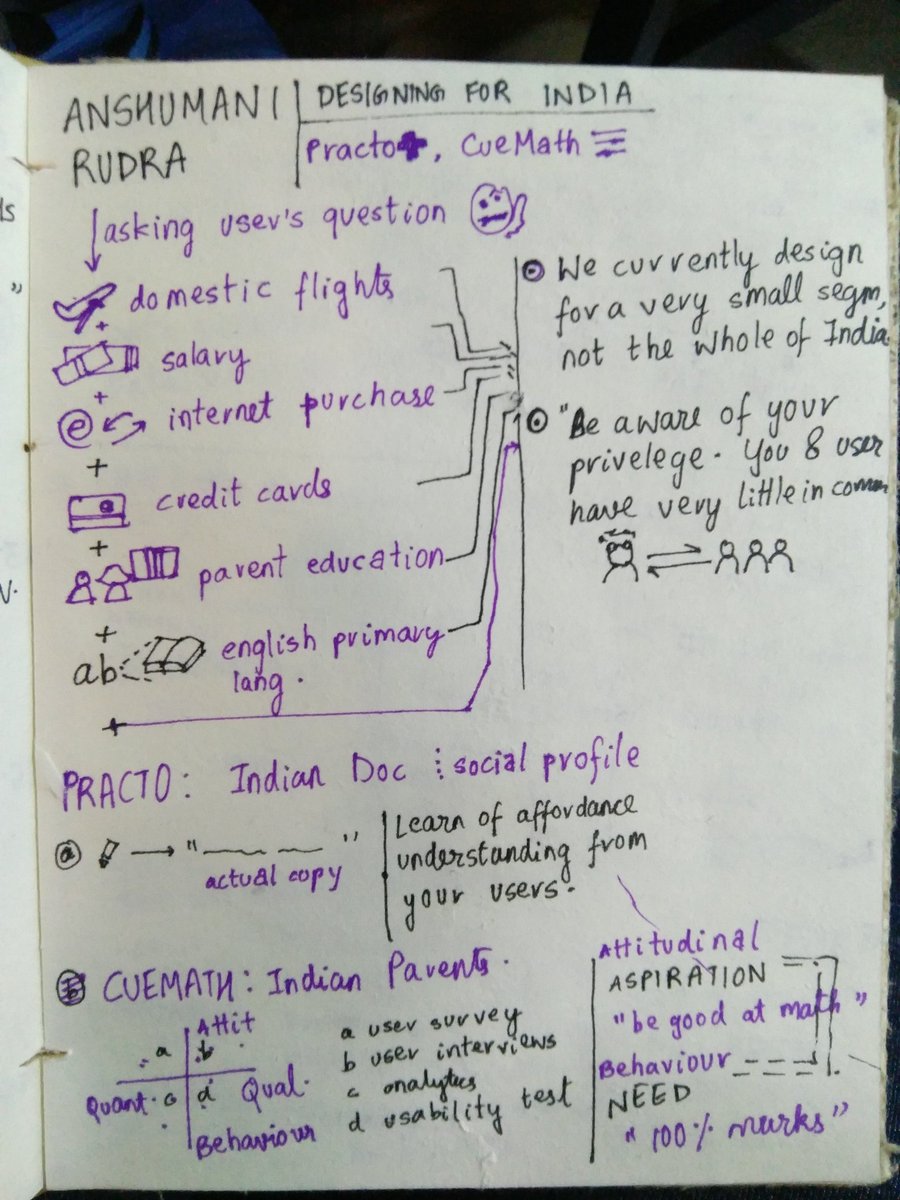 ANSHUMANI
RUDRA
DESIGNING FOR INDIA
Practo, CueMath
asking user's question
domestic flights
+
salary
+
internet purchase
+
credit cards
+
parent education
+
ab
english primary
lang.
+
We currently design
for a very small segm,
not the whole of India
"Be aware of your
privelege. You & user
have very little in common
PRACTO: Indian Doc : social profile
a → " "
actual copy
Learn of affordance
understanding from
your users.
CUEMATH: Indian Parents.
Attit
a b
Quant. c d Qual.
Behaviour
a user survey
b user interviews
c analytics
d usability test
Attitudinal
ASPIRATION
"be good at math"
Behaviour
NEED
"100% marks"